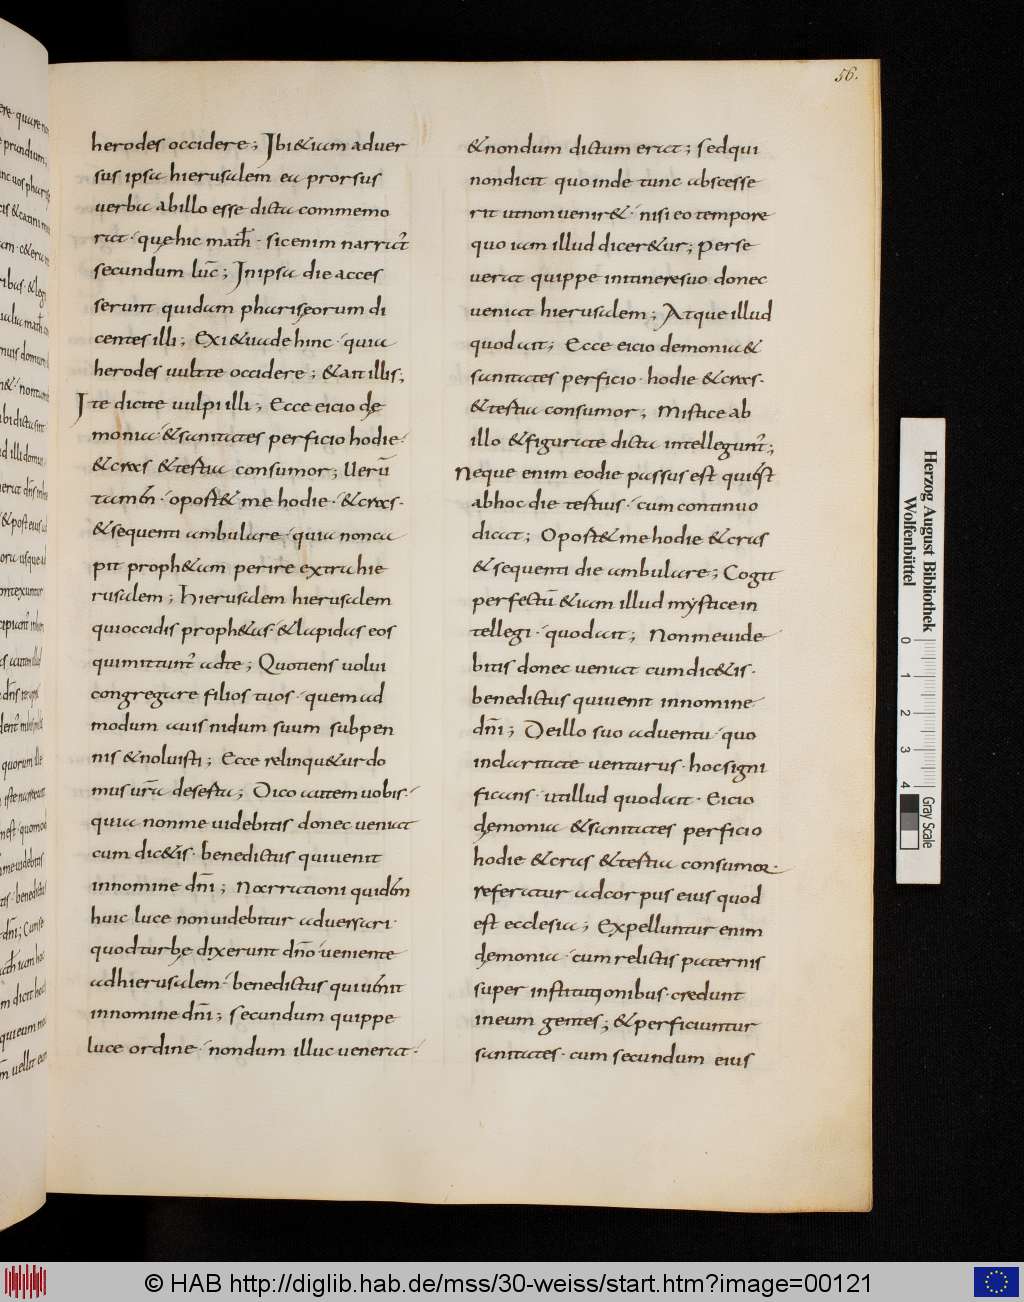 56.
herodes occidere; Ibi &iam aduer
sus ipsa hierusalem ea prorsus
uerba abillo esse dicta commemo
rat · quęhic math̅ · sicenim narrat̅
secundum luc̅; Inipsa die acces
serunt quidam pharisęorum di
centes illi; Exi &uade hinc · quia
herodes uult te occidere; &ait illis;
Ite dicite uulpi illi; Ecce eicio dę
monia · &sanitates perficio hodie ·
&cras &tertia consumor; Ueru̅
tamen · oport& me hodie · &cras ·
&sequenti ambulare · quia nonca
pit proph&am perire extra hie
rusalem; Hierusalem hierusalem
quioccidis proph&as &lapidas eos
quimittunt̅ adte; Quotiens uolui
congregare filios tuos · quemad
modum auis nidum suum subpen
nis &noluisti; Ecce relinqu&urdo
mus ur̅a deserta; Dico autem uobis ·
quia nonme uidebitis donec ueniat
cum dic&is · benedictus quiuenit
innomine dn̅i; Narrationi quidem
huic luce nonuidebitur aduersari ·
quodturbę dixerunt dn̅o ueniente
adhierusalem · benedictus quiuenit
innomine dn̅i; secundum quippe
luce ordine · nondum illuc uenerat ·
&nondum dictum erat; sedqui
nondicit quoinde tunc abscesse
rit utnonuenir& · nisi eo tempore
quo iam illud dicer&ur; perse
uerat quippe initineresuo donec
ueniat hierusalem; Atque illud
quodait; Ecce eicio demonia&
sanitates perficio · hodie &cras ·
&tertia consumor; Mistice ab
illo &figurate dicta intellegunt̅;
Neque enim eodie passus est quię̅st
abhoc die tertius · cum continuo
dicat; Oport& me hodie &cras
&sequenti die ambulare; Cogit
perfectu̅ &iam illud mystice in
tellegi · quodait; Nonmeuide
bitis donec ueniat cumdic&is ·
benedictus quiuenit innomine
dn̅i; Deillo suo aduentu · quo
inclaritate uenturus · hocsigni
ficans · utillud quodait · Eicio
dęmonia &sanitates perficio
hodie &cras &tertia consumor ·
referatur adcorpus eius quod
est ecclesia; Expelluntur enim
dęmonia · cumrelictis paternis
super institutionibus · credunt
ineum gentes; &perficiuntur
sanitates · cum secundum eius
Herzog August Bibliothek
Wolfenbüttel
0 1 2 3 4
Gray Scale
© HAB http://diglib.hab.de/mss/30-weiss/start.htm?image=00121